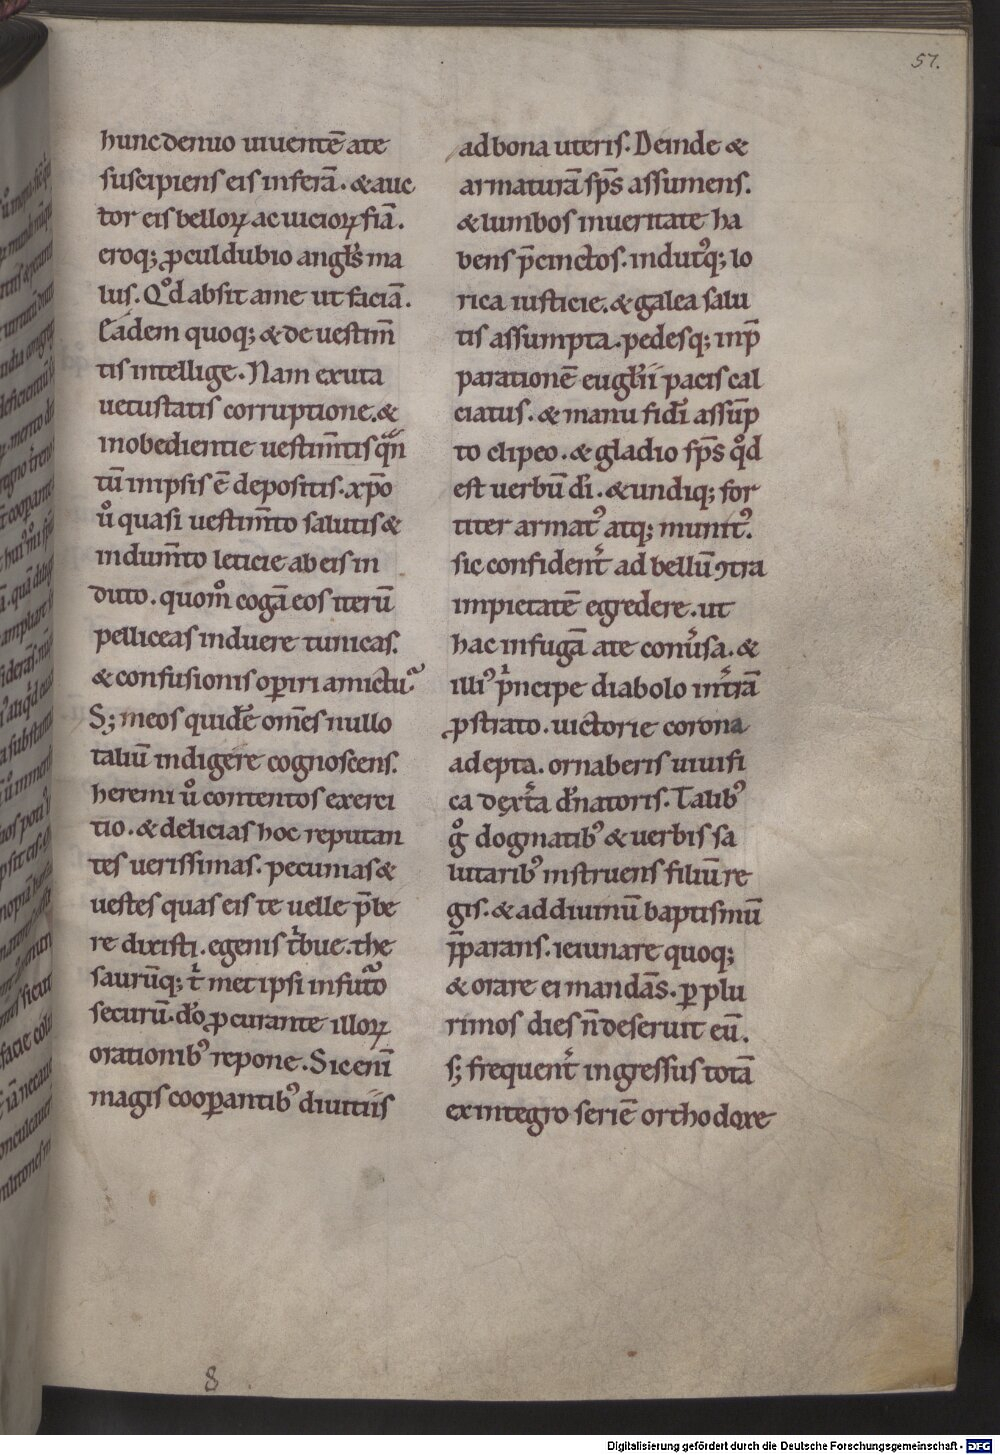 57.
hunc denuo uiuentē a te
suscipiens eis inferā. & auc
tor eis belloꝝ ac uicioꝝ fiā.
eroq; ꝓculdubio angl̃s ma
lus. Qͦd absit a me ut faciā.
Eadem quoq; & de uestim̄
tis intellige. Nam exuta
uetustatis corruptione. &
inobedientie uestim̄tis qn̄
tū in ipsis ē depositis. xp̄o
ůͦ quasi uestim̄to salutis &
indum̄to leticie ab eis in
duto. quom̊ cogā eos iterū
pelliceas induere tunicas.
& confusionis oꝑiri amictu.
S; meos quidē om̄es nullo
taliū indigere cognoscens.
heremi uͦ contentos exerci
tio. & delicias hoc reputan
tes uerissimas. pecunias &
uestes quas eis te uelle p̄be
re dixisti. egenis tͥbue. the
saurūq; tͥ met ipsi in futͣo
securū. dn̄o ꝓcurante illoꝝ
orationibꝰ repone. Sic eni
magis cooꝑantibꝰ diuitiis
ad bona uteris. Deinde &
armaturā sp̄s assumens.
& lumbos in ueritate ha
bens p̄cinctos. indutꝰq; lo
rica iusticie. & galea salu
tis assumpta. pedesq; in p̄
parationē eugl̃ii pacis cal
ciatus. & manu fidi assūp
to clipeo. & gladio sp̄s qͦd
est uerbū dī. & undiq; for
titer armatꝰ atq; munitꝰ.
sic confident̃ ad bellū ꝯtra
impietatē egredere. ut
hac in fugā a te conũsa. &
illiꝰ pͥncipe diabolo in t̃rā
ꝓstrato. uictorie corona
adepta. ornaberis uiuifi
ca dext̃a dn̄atoris. Talibꝰ
gͦ dogmatibꝰ & uerbis sa
lutaribꝰ instruens filiū re
gis. & ad diuinū baptismū
p̄parans. ieiunare quoq;
& orare ei mandās. ꝑ plu
rimos dies n̄ deseruit eū.
s; frequent̃ ingressus totā
ex integro seriē orthodoxe
8
Digitalisierung gefördert durch die Deutsche Forschungsgemeinschaft - DFG